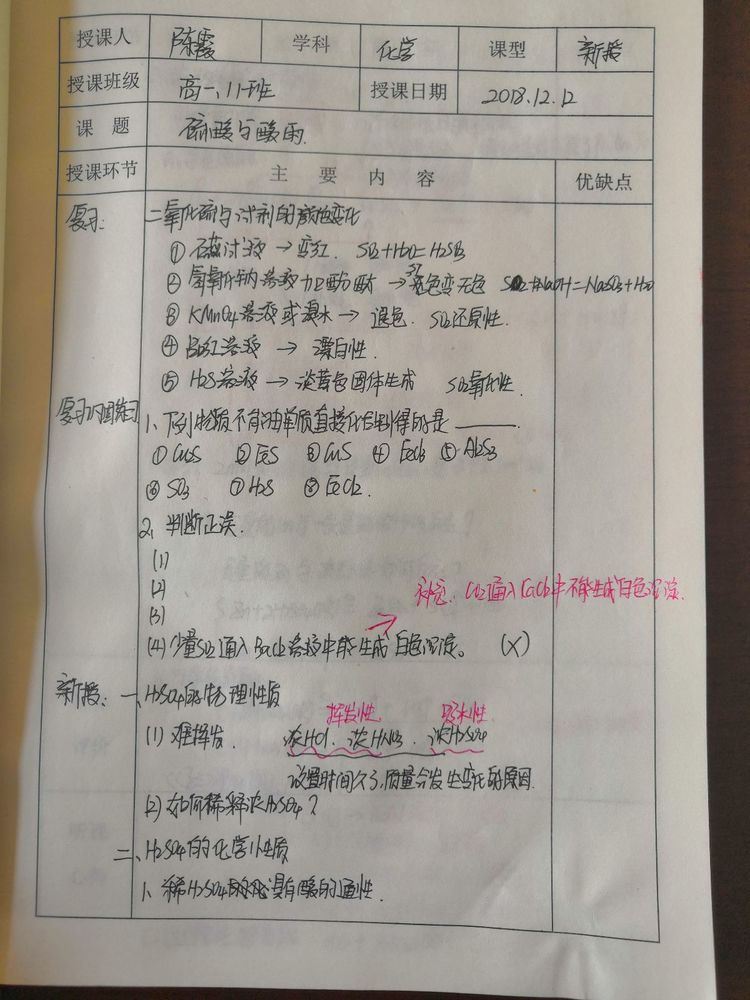 授课人 陈霞 学科 化学 课型 新授
授课班级 高一、11班 授课日期 2018.12.12
课 题 硫酸与酸雨.
授课环节 主 要 内 容 优缺点
复习: 二氧化硫与试剂的颜色变化
① 石蕊试液 → 变红. SO2+H2O=H2SO3
② 氢氧化钠溶液加酚酞 → 红色变无色 SO2+NaOH=Na2SO3+H2O
③ KMnO4溶液或溴水 → 退色. SO2还原性.
④ 品红溶液 → 漂白性.
⑤ H2S溶液 → 淡黄色固体生成 SO2氧化性.
复习巩固练习 1、下列物质不能由单质直接化合制得的是 ______.
① CuS ② FeS ③ CuS ④ FeCl3 ⑤ Al2S3
⑥ SO3 ⑦ H2S ⑧ FeCl2.
2、判断正误.
(1)
(2) 补充: CO2通入CaCl2中不能生成白色沉淀.
(3)
(4) 少量SO2通入BaCl2溶液中能生成白色沉淀。 (X)
新授: 一、H2SO4的物理性质
挥发性 吸水性.
(1) 难挥发. 浓HCl、浓HNO3、浓H2SO4
放置时间久了,质量会发生变化的原因.
(2) 如何稀释浓H2SO4?
二、H2SO4的化学性质
1、稀H2SO4具有酸的通性.